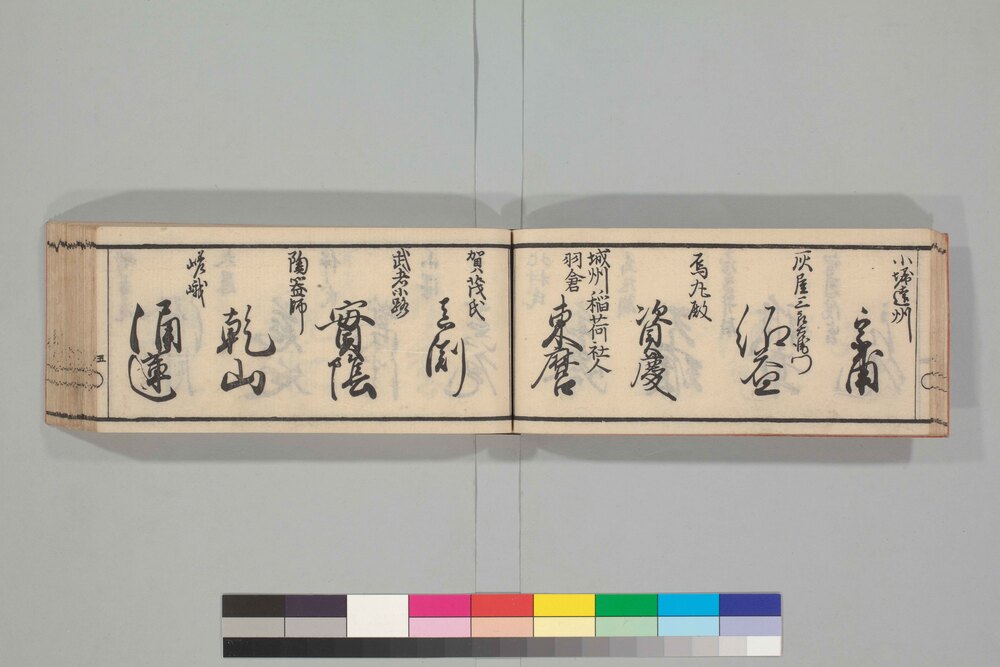 小堀遠州
宗甫
灰屋三郎右衛門
紹益
烏丸殿
資慶
城州稲荷社人
羽倉
東麿
賀茂氏
真淵
武者小路
實蔭
陶器師
乾山
嵯峨
涌蓮
五